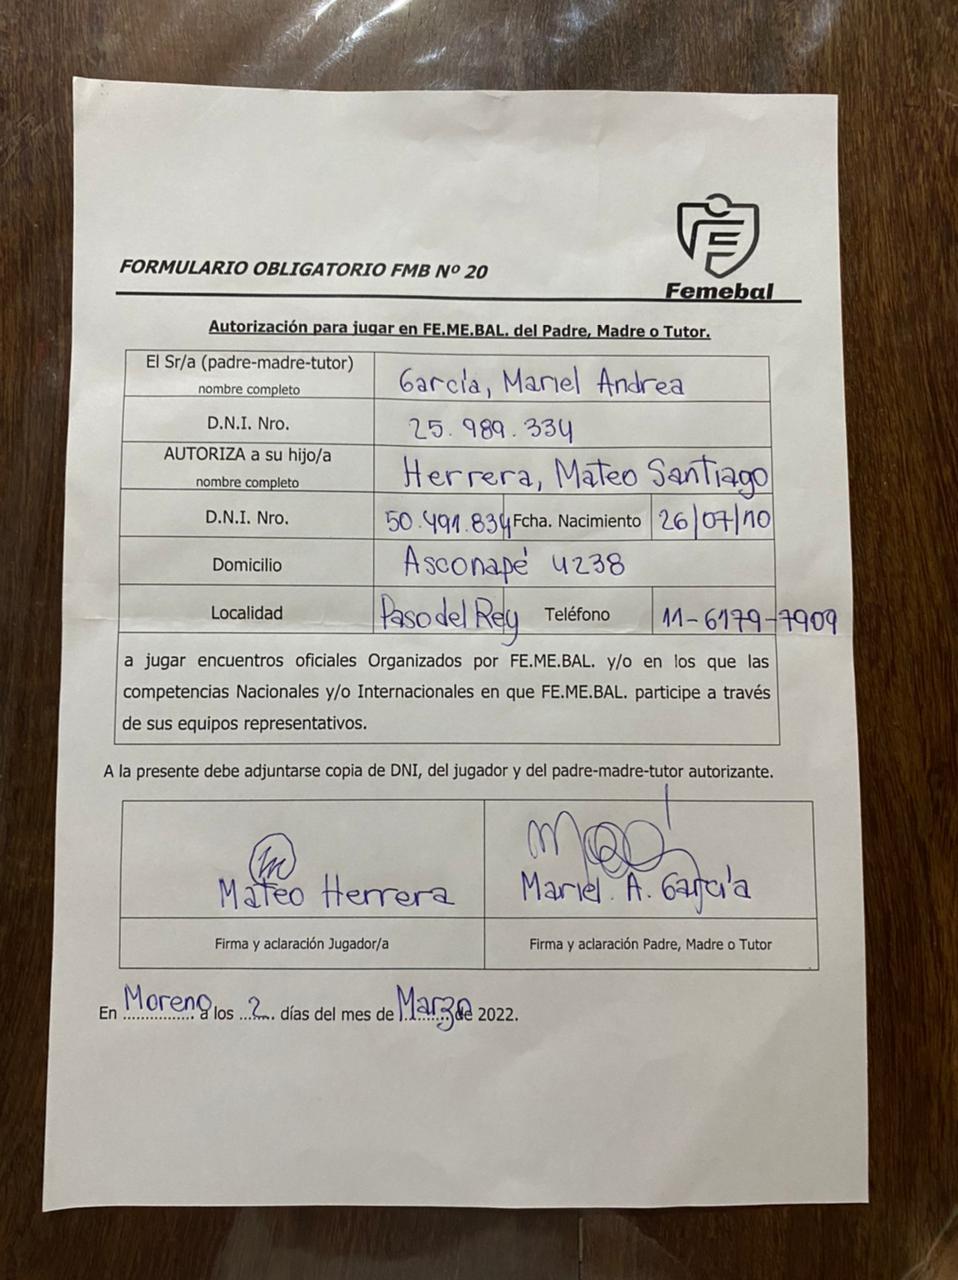 Femebal
FORMULARIO OBLIGATORIO FMB Nº 20
Autorización para jugar en FE.ME.BAL. del Padre, Madre o Tutor.
El Sr/a (padre-madre-tutor)
nombre completo
García, Mariel Andrea
D.N.I. Nro.
25.989.334
AUTORIZA a su hijo/a
nombre completo
Herrera, Mateo Santiago
D.N.I. Nro. 50.491.834 Fcha. Nacimiento 26/07/10
Domicilio Asconapé 4238
Localidad Paso del Rey Teléfono 11-6179-7909
a jugar encuentros oficiales Organizados por FE.ME.BAL. y/o en los que las
competencias Nacionales y/o Internacionales en que FE.ME.BAL. participe a través
de sus equipos representativos.
A la presente debe adjuntarse copia de DNI, del jugador y del padre-madre-tutor autorizante.
Mateo Herrera
Mariel. A. García
Firma y aclaración Jugador/a
Firma y aclaración Padre, Madre o Tutor
En Moreno a los 2 días del mes de Marzo de 2022.